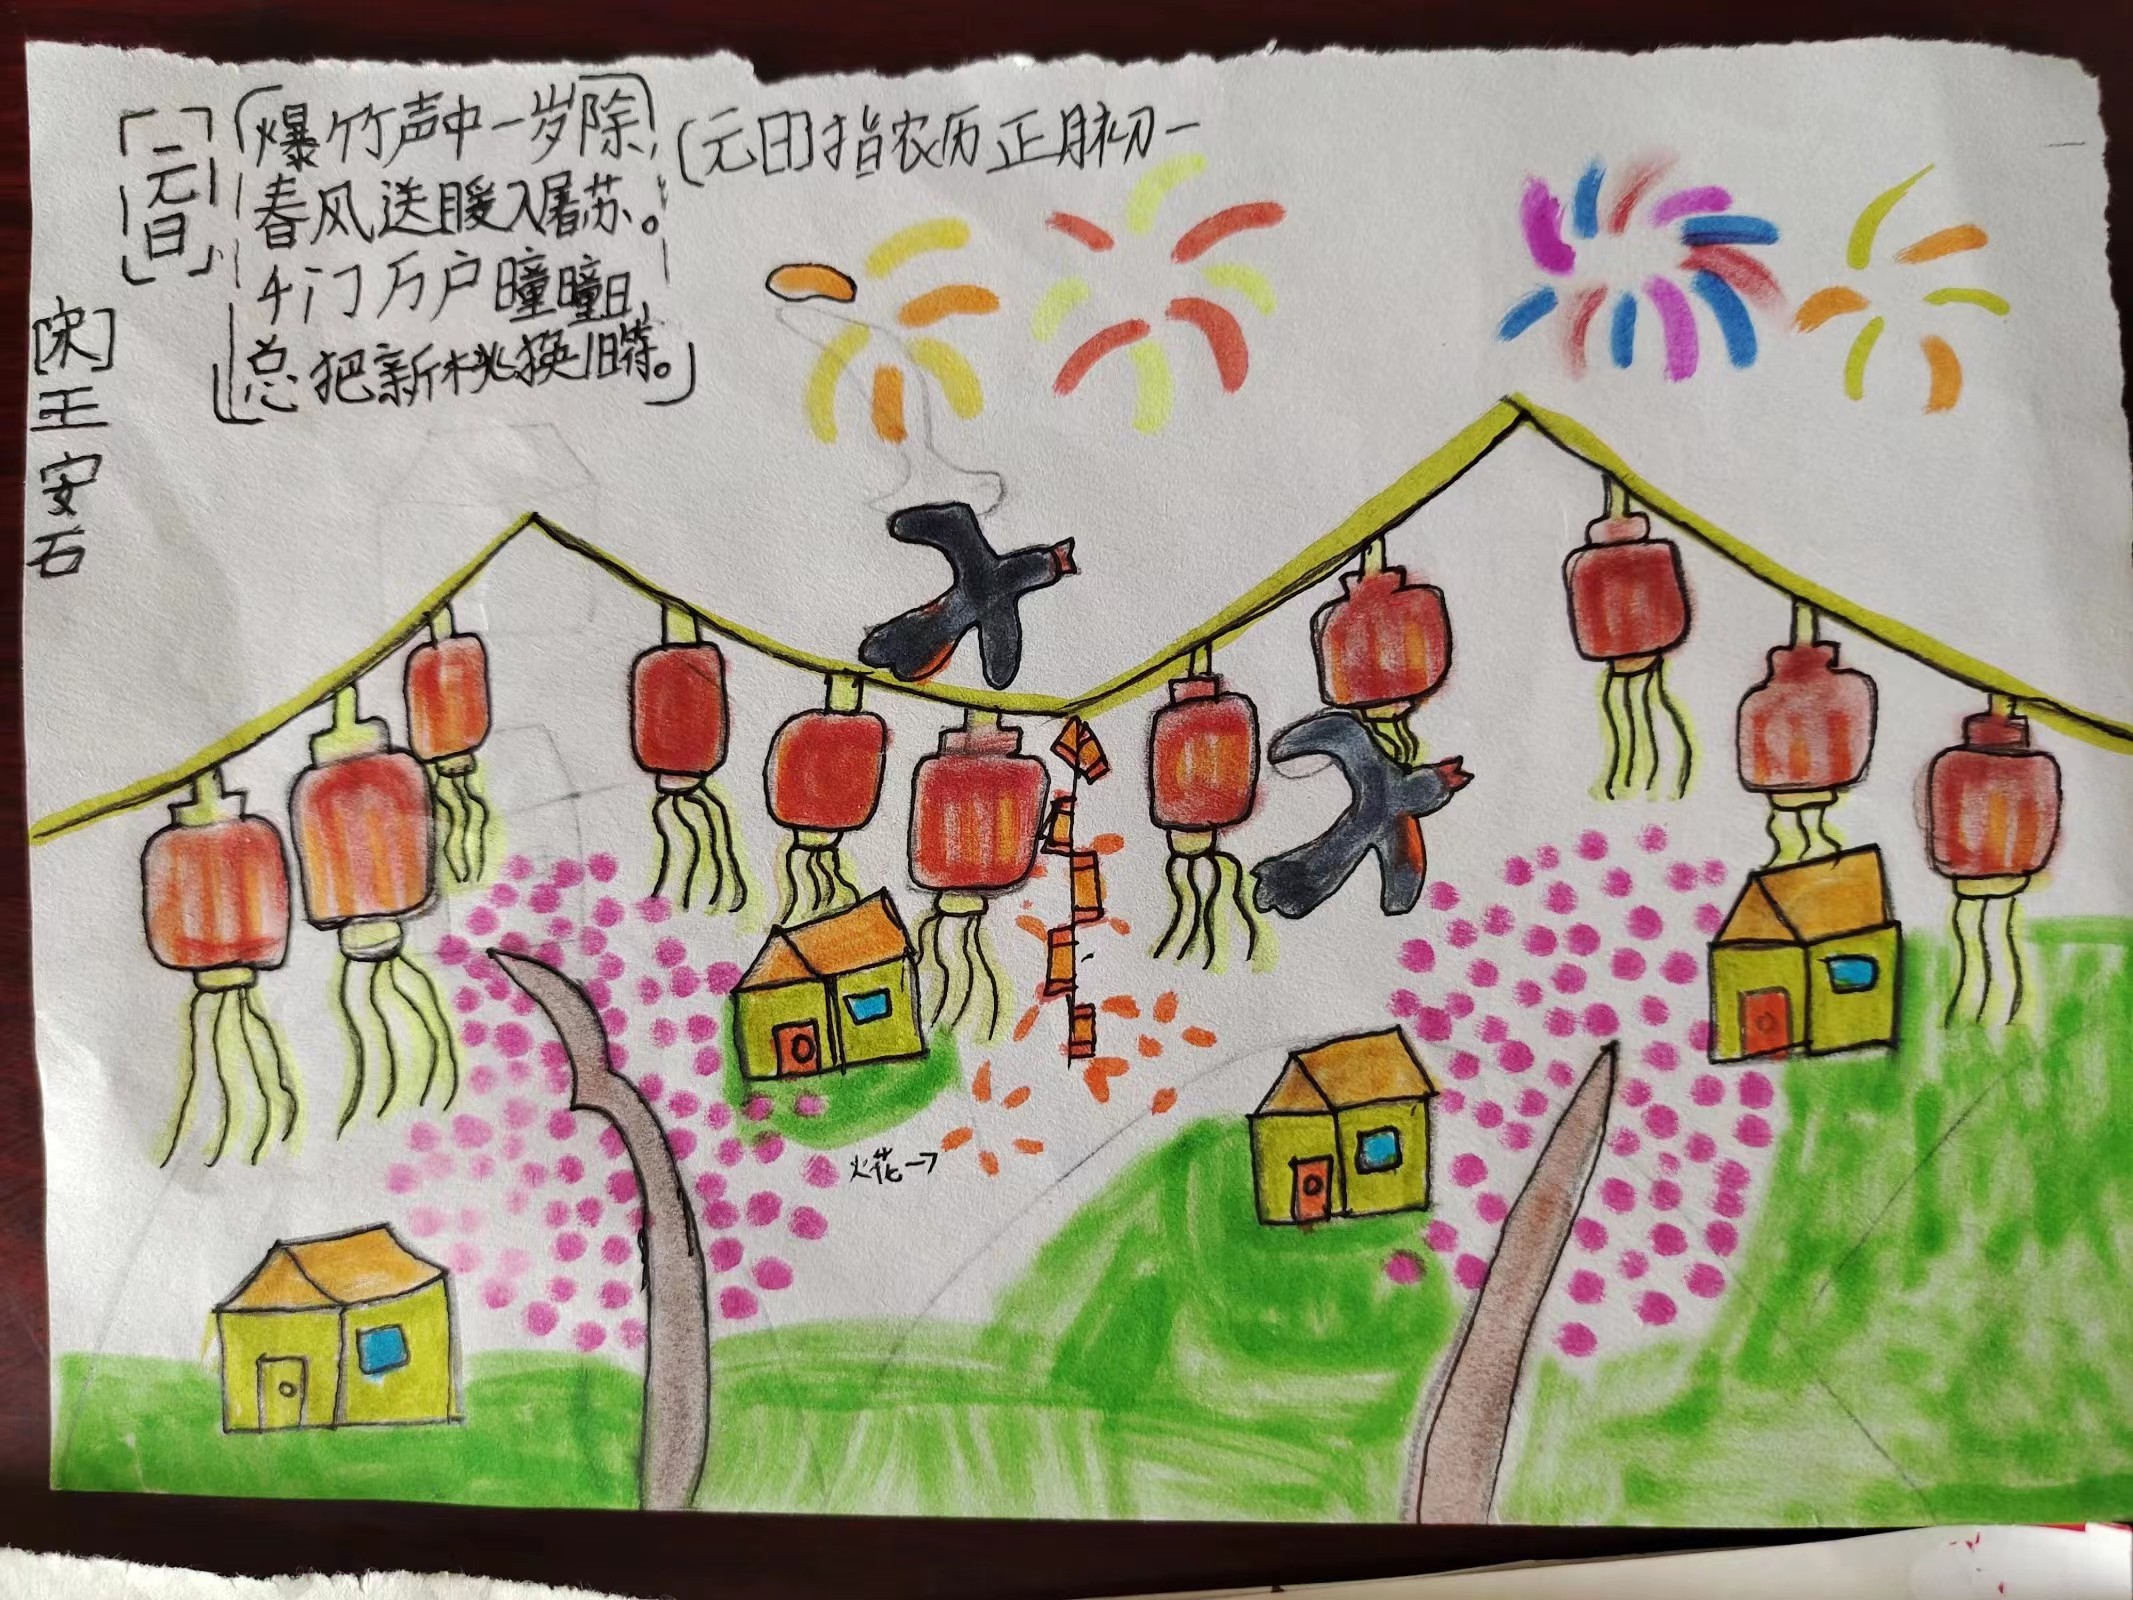 [元日]
[宋]王安石
爆竹声中一岁除，
春风送暖入屠苏。
千门万户曈曈日，
总把新桃换旧符。
[元日]指农历正月初一
火花→